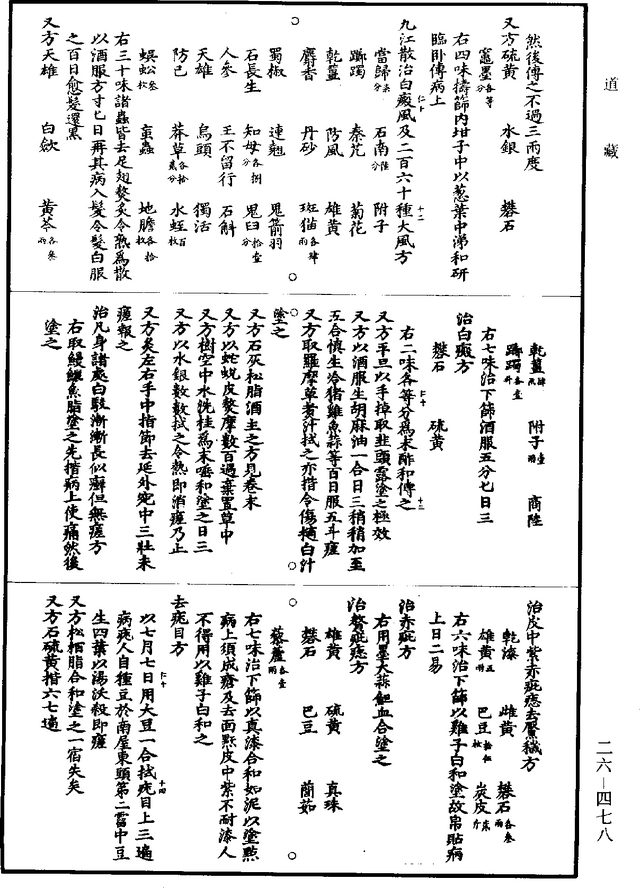 道藏
然後傅之不過三兩度
又方硫黃 水銀 礬石
竈墨各等分
右四味擣篩內坩子中以葱葉中涕和研
臨卧傅病上
九江散治白癜風及二百六十種大風方
當歸 石南 附子
躑躅 秦艽 菊花
乾薑 防風 雄黃
麝香 丹砂 斑猫
蜀椒 連翹 鬼箭羽
石長生 知母各捌分 鬼臼
人參 王不留行 石斛
天雄 烏頭 獨活
防己 莽草 水蛭百枚
蜈蚣叁枚 䖟蟲 地膽各拾枚
右三十味諸蟲皆去足翅熬炙令熟為散
以酒服方寸匕日再其病入髮令髮白服
之百日愈髮還黑
又方天雄 白斂 黃芩各叁兩
乾薑 附子壹兩 商陸
躑躅各壹升
右七味治下篩酒服五分匕日三
治白癜方
礬石 硫黃
右二味各等分為末酢和傅之
又方平旦以手掉取韭頭露塗之極效
又方以酒服生胡麻油一合日三稍稍加至
五合慎生冷猪雞魚蒜等百日服五斗瘥
又方取羅摩草煮汁拭之亦揩令傷擿白汁
塗之
又方石灰松脂酒主之方見卷末
又方以蛇蛻皮熬摩數百過棄置草中
又方樹空中水洗桂為末唾和塗之日三
又方以水銀數數拭之令熱即消瘥乃止
又方灸左右手中指節去延外宛中三壯未
瘥報之
治凡身諸處白駁漸漸長似癬但無瘡方
右取鰻鱺魚脂塗之先揩病上使痛然後
塗之
治皮中紫赤疵痣去黶穢方
乾漆 雌黃 礬石各叁兩
雄黃五兩 巴豆 炭皮
右六味治下篩以雞子白和塗故帛貼病
上日二易
治赤疵方
右用墨大蒜䱇血合塗之
治贅疵痣方
雄黃 硫黃 真珠
礬石 巴豆 䕡茹
藜蘆各壹兩
右七味治下篩以真漆合和如泥以塗點
病上須成瘡及去面點皮中紫不耐漆人
不得用以雞子白和之
去疣目方
以七月七日用大豆一合拭疣目上三過
病疣人自種豆於南屋東頭第二霤中豆
生四葉以湯沃殺即瘥
又方松栢脂合和塗之一宿失矣
又方石硫黃揩六七遍
二六—四七八